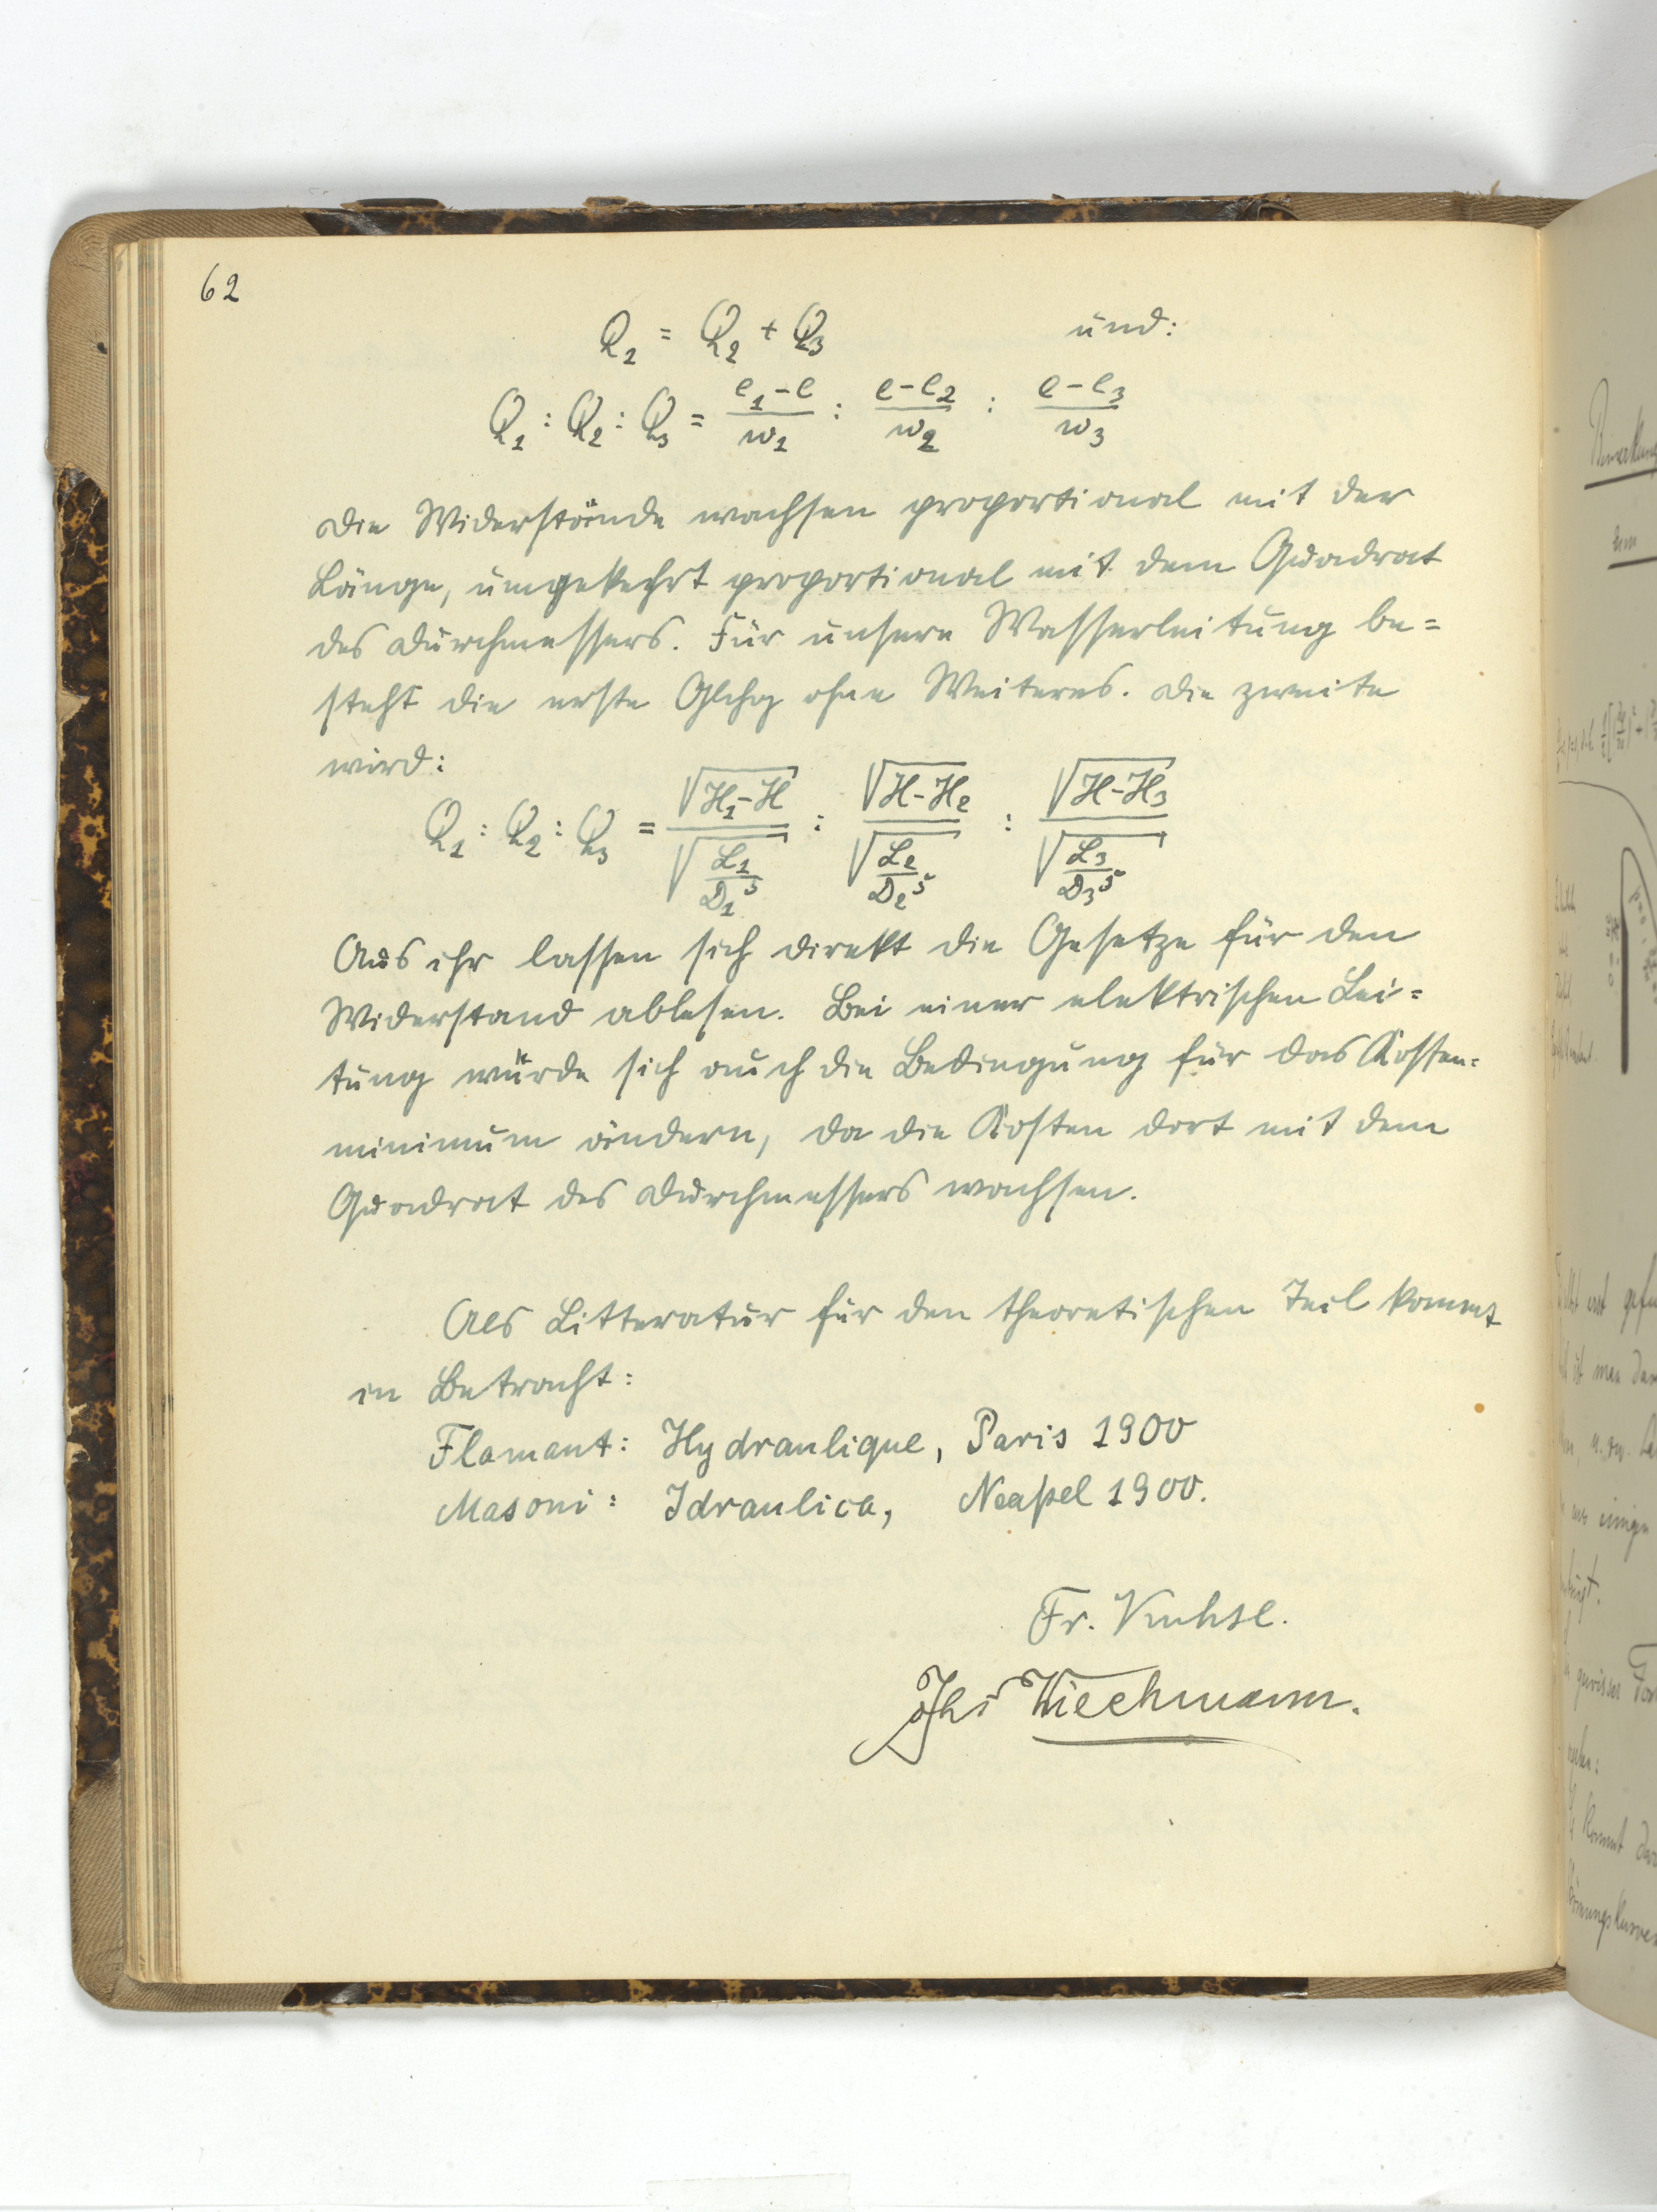 62
Q₁ = Q₂ + Q₃ und:
Q₁ : Q₂ : Q₃ = (e₁-e)/w₁ : (e-e₂)/w₂ : (e-e₃)/w₃
Die Widerstände wachsen proportional mit der
Länge, umgekehrt proportional mit dem Quadrat
des Durchmessers. Für unsere Wasserleitung be=
steht die erste Glchg ohne Weiteres. Die zweite
wird:
Q₁ : Q₂ : Q₃ = √(H₁-H)/√(L₁/D₁⁵) : √(H-H₂)/√(L₂/D₂⁵) : √(H-H₃)/√(L₃/D₃⁵)
Aus ihr lassen sich direkt die Gesetze für den
Widerstand ablesen. Bei einer elektrischen Lei=
tung würde sich auch die Bedingung für das Kosten=
minimum ändern, da die Kosten dort mit dem
Quadrat des Durchmessers wachsen.
Als Litteratur für den theoretischen Teil kommt
in Betracht:
Flamant: Hydraulique, Paris 1900
Masoni: Idraulica, Neapel 1900.
Fr.
Wiechmann.